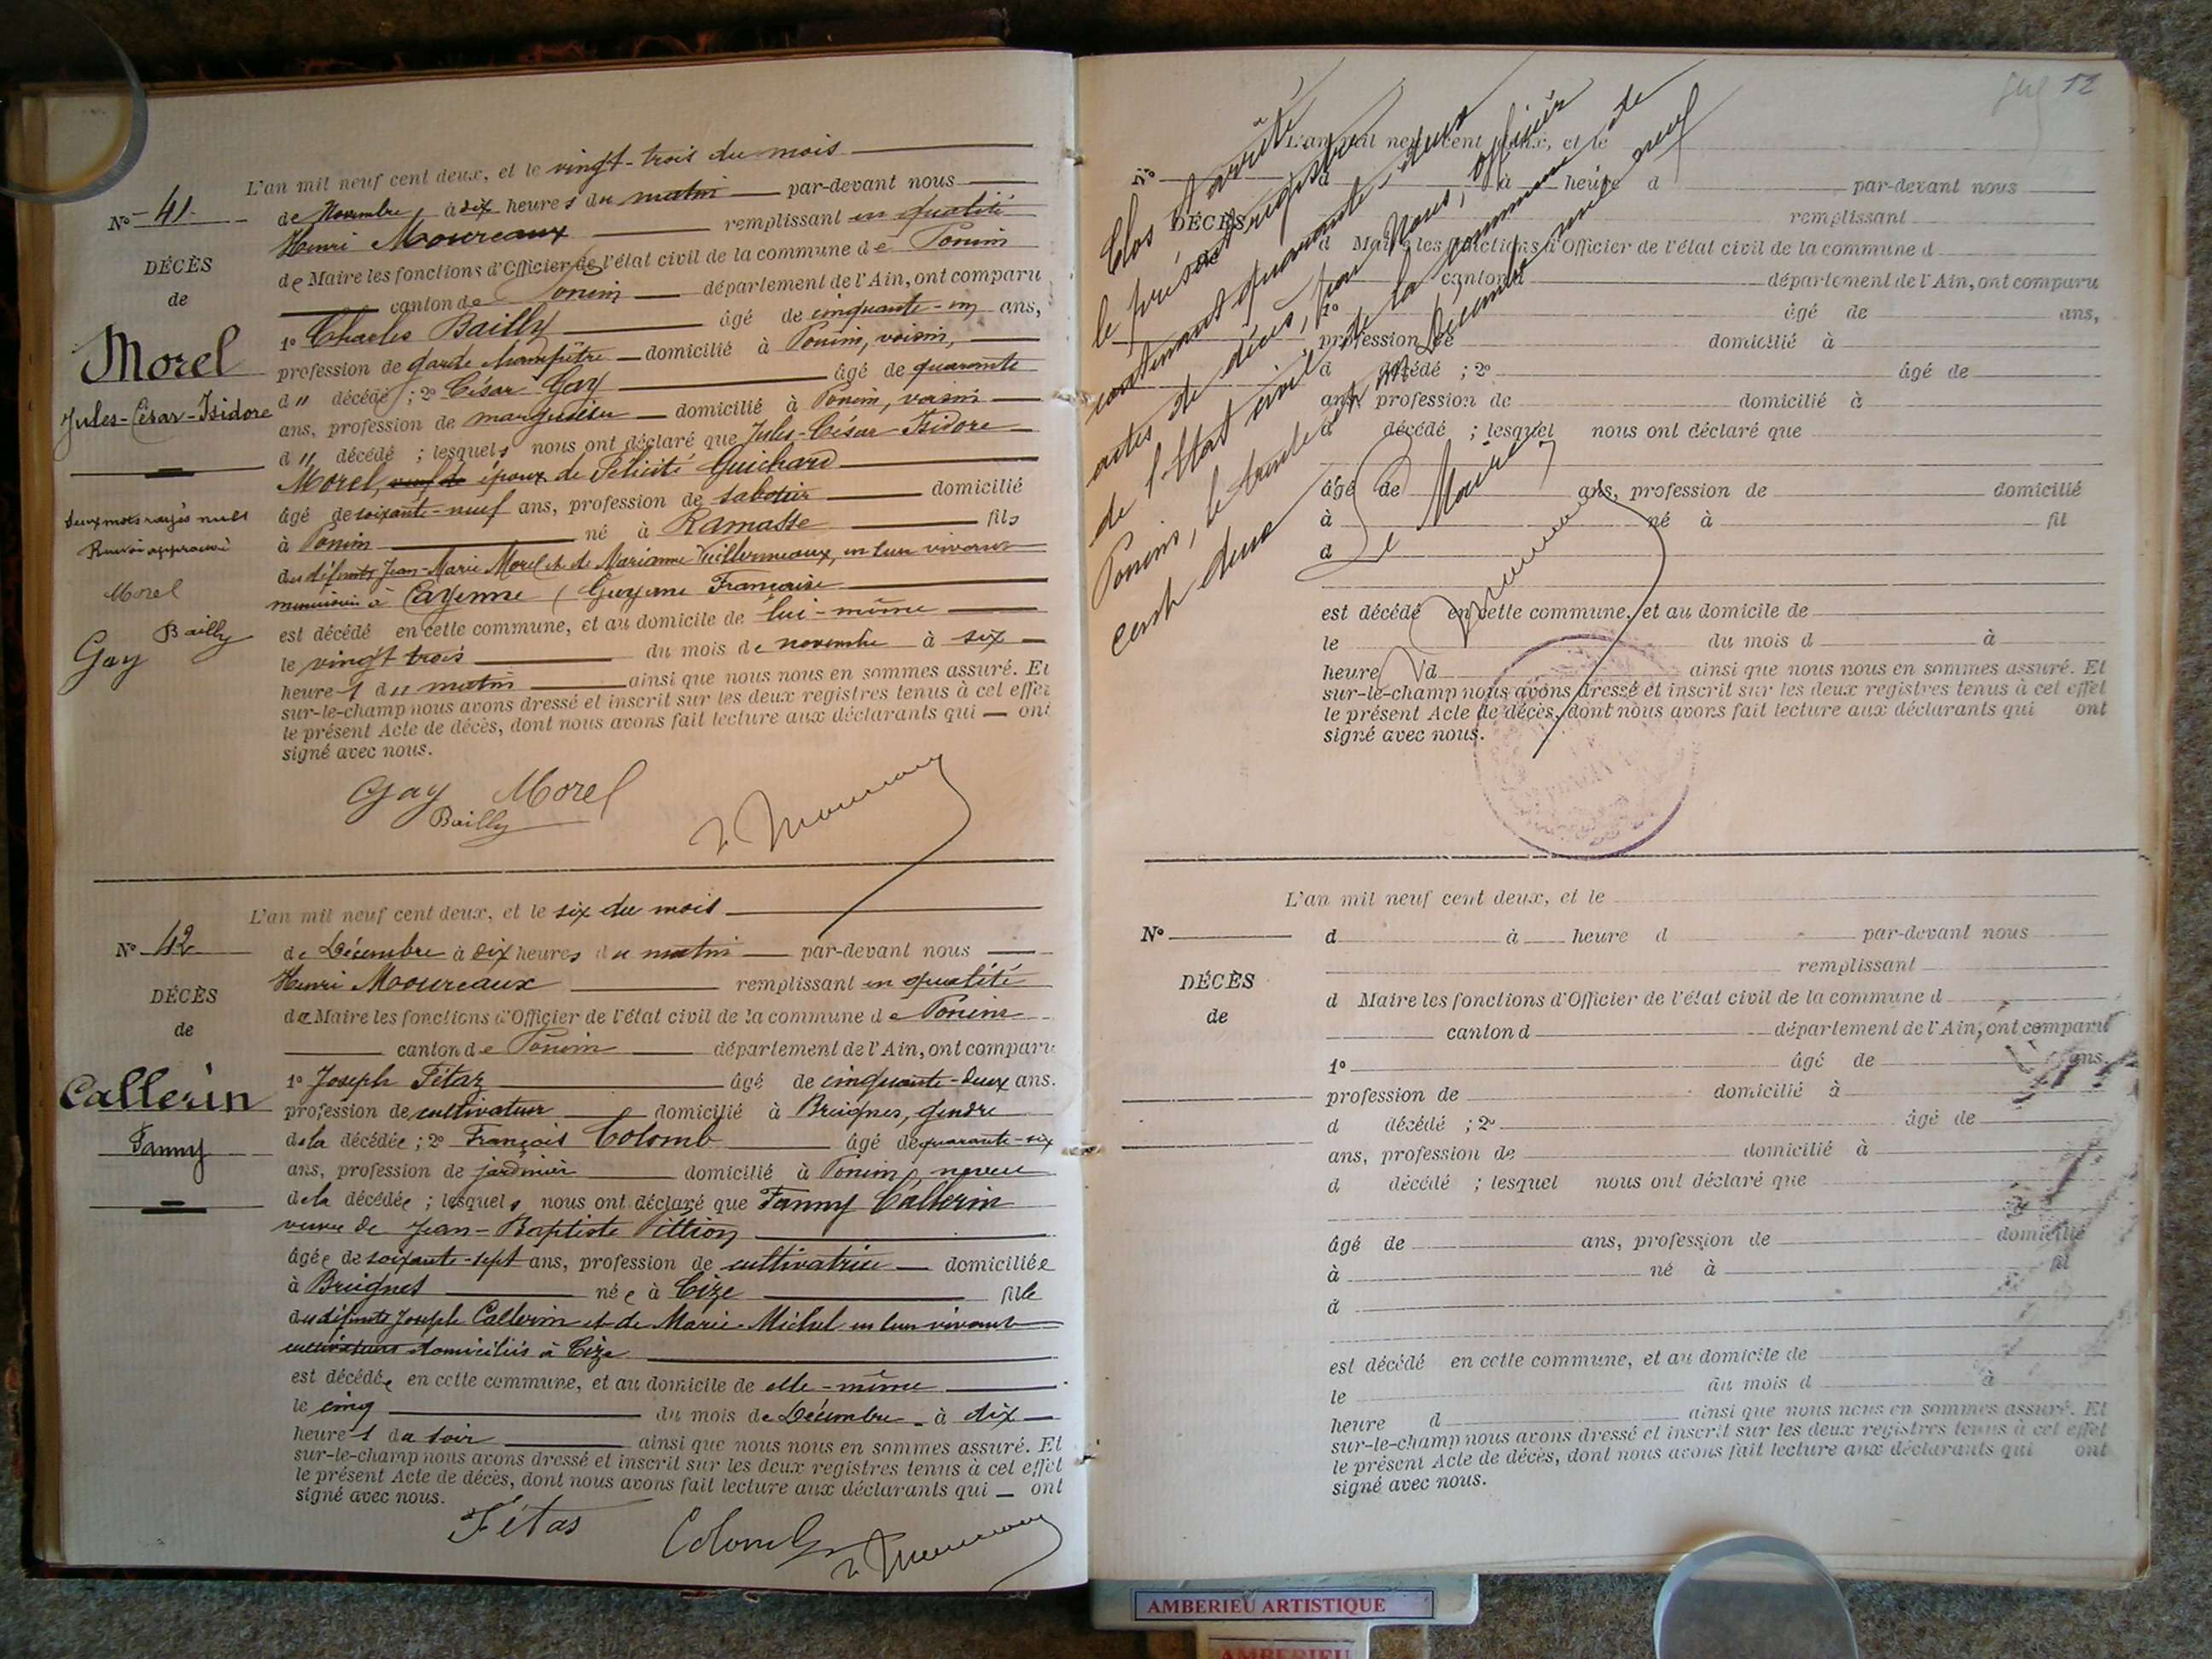 L'an mil neuf cent deux, et le vingt-trois du mois
No 41.
de Novembre à dix heures du matin par-devant nous
Henri Moureaux remplissant en qualité
DÉCÈS
de Maire les fonctions d'Officier de l'état civil de la commune de Poncin
de
canton de Poncin département de l'Ain, ont comparu
1o Charles Bailly âgé de cinquante-un ans,
Morel
profession de garde champêtre domicilié à Poncin, voisin,
d" décédé ; 2o César Gay âgé de quarante
Jules-César-Isidore
ans, profession de domicilié à Poncin, voisin
d" décédé ; lesquels nous ont déclaré que Jules-César-Isidore
Morel, veuf de époux de Félicité Guichard
deux mots rayés nuls
âgé de soixante-neuf ans, profession de sabotier domicilié
Renvoi approuvé
à Poncin né à Ramasse fils
des défunts Jean-Marie Morel et de Marianne Vuillermeaux, en leur vivant
Morel
à Cayenne (Guyane Française
Bailly
est décédé en cette commune, et au domicile de lui-même
Gay
le vingt trois du mois de novembre à six
heures du matin ainsi que nous nous en sommes assuré. Et
sur-le-champ nous avons dressé et inscrit sur les deux registres tenus à cet effet
le présent Acte de décès, dont nous avons fait lecture aux déclarants qui — ont
signé avec nous.
Gay Morel
Bailly
H. Moureaux
L'an mil neuf cent deux, et le six du mois
No 42
de Décembre à dix heures du matin par-devant nous
Henri Moureaux remplissant en qualité
DÉCÈS
de Maire les fonctions d'Officier de l'état civil de la commune de Poncin
de
canton de Poncin département de l'Ain, ont comparu
1o Joseph Fétaz âgé de cinquante-deux ans.
Callerin
profession de cultivateur domicilié à Breignes, gendre
Fanny
de la décédée ; 2o François Colomb âgé de quarante-six
ans, profession de jardinier domicilié à Poncin, neveu
de la décédée ; lesquels nous ont déclaré que Fanny Callerin
veuve de Jean-Baptiste Pittion
âgée de soixante-sept ans, profession de cultivatrice domiciliée
à Breignes née à Cize fille
des défunts Joseph Callerin et de Marie Michel en leur vivant
cultivateurs domiciliés à Cize
est décédée en cette commune, et au domicile de elle-même
le cinq du mois de Décembre à dix
heures du soir ainsi que nous nous en sommes assuré. Et
sur-le-champ nous avons dressé et inscrit sur les deux registres tenus à cet effet
le présent Acte de décès, dont nous avons fait lecture aux déclarants qui — ont
signé avec nous.
Fétas Colomb H. Moureaux
12
Clos et arrêté
le présent registre
contenant quarante-deux
actes de décès, par Nous, officier
de l'Etat civil de la commune de
Poncin, le trente et un Décembre mil neuf
cent deux
Le Maire,
H. Moureaux
L'an mil neuf cent deux, et le
No d à heure d par-devant nous
remplissant
DÉCÈS
d Maire les fonctions d'Officier de l'état civil de la commune d
canton d département de l'Ain, ont comparu
1o âgé de ans,
profession de domicilié à
d décédé ; 2o âgé de
ans, profession de domicilié à
d décédé ; lesquel nous ont déclaré que
âgé de ans, profession de domicilié
à né à fil
d
est décédé en cette commune, et au domicile de
le du mois d à
heure d ainsi que nous nous en sommes assuré. Et
sur-le-champ nous avons dressé et inscrit sur les deux registres tenus à cet effet
le présent Acte de décès, dont nous avons fait lecture aux déclarants qui ont
signé avec nous.
L'an mil neuf cent deux, et le
No d à heure d par-devant nous
remplissant
DÉCÈS
d Maire les fonctions d'Officier de l'état civil de la commune d
de
canton d département de l'Ain, ont comparu
1o âgé de ans,
profession de domicilié à
d décédé ; 2o âgé de
ans, profession de domicilié à
d décédé ; lesquel nous ont déclaré que
âgé de ans, profession de domicilié
à né à fil
d
est décédé en cette commune, et au domicile de
le du mois d à
heure d ainsi que nous nous en sommes assuré. Et
sur-le-champ nous avons dressé et inscrit sur les deux registres tenus à cet effet
le présent Acte de décès, dont nous avons fait lecture aux déclarants qui ont
signé avec nous.
AMBERIEU ARTISTIQUE
AMBERIEU